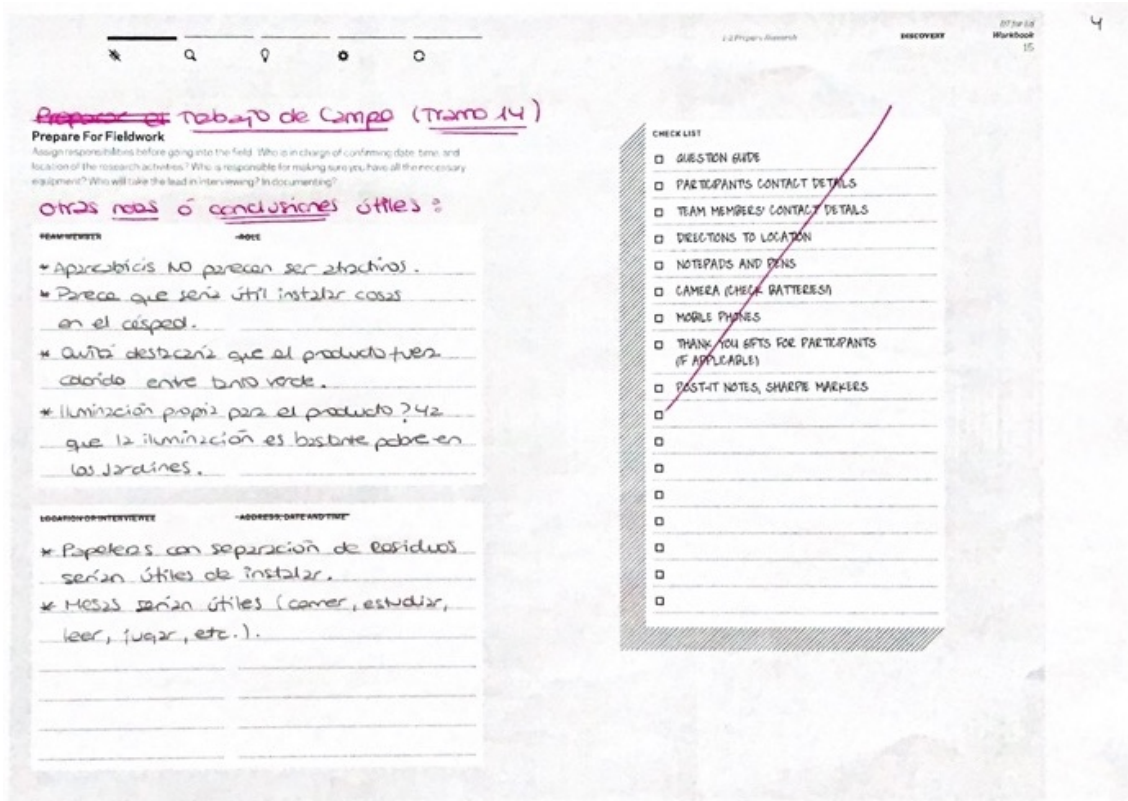 4
1-2 Prepare Research
DISCOVERY
DT for Ed
Workbook
15
Preparar el Trabajo de Campo (Tramo 14)
Prepare For Fieldwork
Assign responsibilities before going into the field. Who is in charge of confirming date, time, and
location of the research activities? Who is responsible for making sure you have all the necessary
equipment? Who will take the lead in interviewing? In documenting?
Otras notas ó conclusiones útiles:
TEAM MEMBER
ROLE
* Aparcabicis NO parecen ser atractivos.
* Parece que sería útil instalar cosas
en el césped.
* Quizá destacaría que el producto fuera
colorido entre tanto verde.
* Iluminación propia para el producto? Ya
que la iluminación es bastante pobre en
los Jardines.
LOCATION OR INTERVIEWEE
ADDRESS, DATE AND TIME
* Papeleras con separación de Residuos
serían útiles de instalar.
* Mesas serían útiles (comer, estudiar,
leer, jugar, etc.).
CHECK LIST
QUESTION GUIDE
PARTICIPANTS CONTACT DETAILS
TEAM MEMBERS' CONTACT DETAILS
DIRECTIONS TO LOCATION
NOTEPADS AND PENS
CAMERA (CHECK BATTERIES!)
MOBILE PHONES
THANK YOU GIFTS FOR PARTICIPANTS
(IF APPLICABLE)
POST-IT NOTES, SHARPIE MARKERS